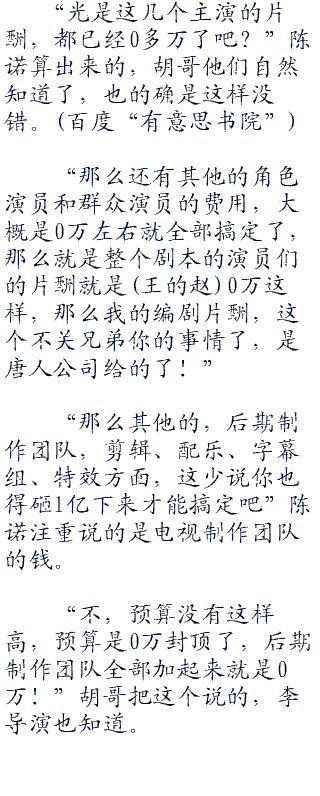 “光是这几个主演的片
酬，都已经0多万了吧？”陈
诺算出来的，胡哥他们自然
知道了，也的确是这样没
错。(百度“有意思书院”)
“那么还有其他的角色
演员和群众演员的费用，大
概是0万左右就全部搞定了，
那么就是整个剧本的演员们
的片酬就是(王的赵)0万这
样，那么我的编剧片酬，这
个不关兄弟你的事情了，是
唐人公司给的了！”
“那么其他的，后期制
作团队，剪辑、配乐、字幕
组、特效方面，这少说你也
得砸1亿下来才能搞定吧”陈
诺注重说的是电视制作团队
的钱。
“不，预算没有这样
高，预算是0万封顶了，后期
制作团队全部加起来就是0
万！”胡哥把这个说的，李
导演也知道。